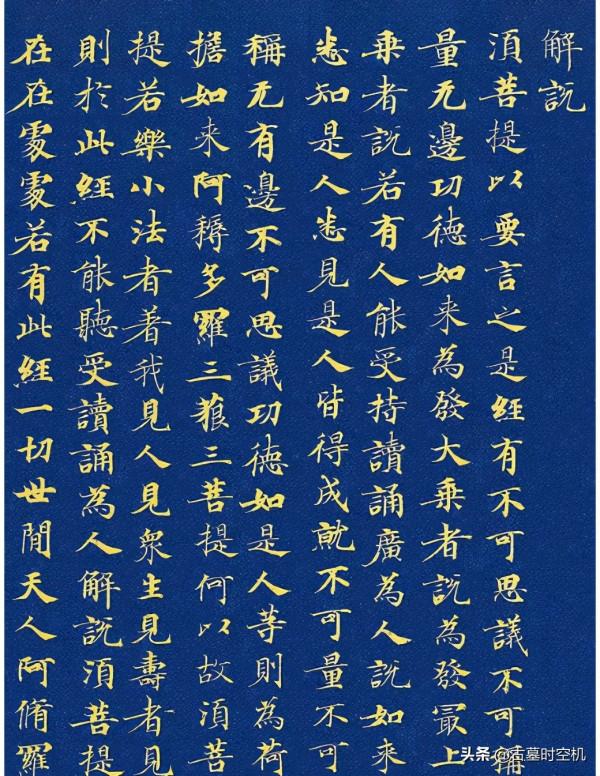 解說
須菩提以要言之是經有不可思議不可稱
量无邊功德如来為發大乗者說為發最上
乗者說若有人能受持讀誦廣為人說如来
悉知是人悉見是人皆得成就不可量不可
稱无有邊不可思議功德如是人等則為荷
擔如来阿耨多羅三藐三菩提何以故須菩
提若樂小法者著我見人見衆生見壽者見
則於此經不能聽受讀誦為人解說須菩提
在在處處若有此經一切世間天人阿脩羅
头条 @古墓时空机